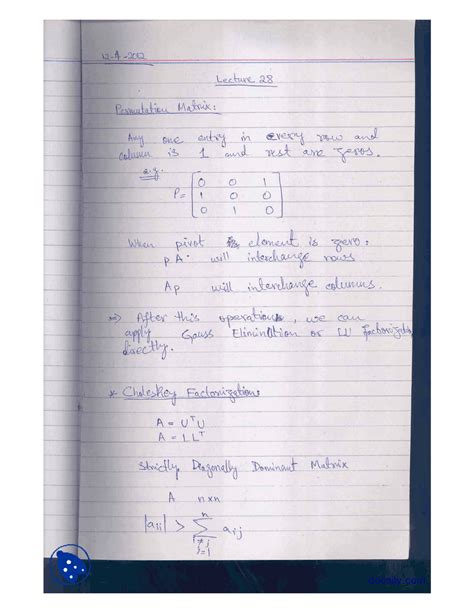 12-4-2012
Lecture 28
Permutation Matrix:
Any one entry in every row and
column is 1 and rest are zeros.
e.g.
P = [ 0 0 1
1 0 0
0 1 0 ]
When pivot element is zero:
PA will interchange rows
AP will interchange columns.
=> After this operations, we can
apply Gauss Elimination or LU Factorization
directly.
* Choleskey Factorization:
A = UᵀU
A = LLᵀ
Strictly Diagonally Dominant Matrix
A n×n
|aii| > n∑i≠j j=1 aij
docsity.com